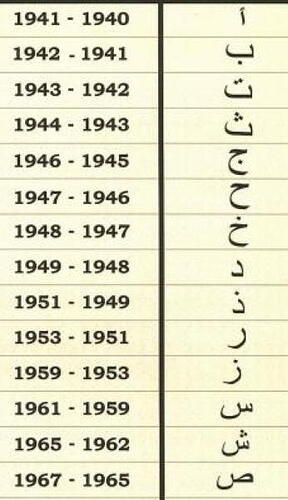 1941 - 1940 أ
1942 - 1941 ب
1943 - 1942 ت
1944 - 1943 ث
1946 - 1945 ج
1947 - 1946 ح
1948 - 1947 خ
1949 - 1948 د
1951 - 1949 ذ
1953 - 1951 ر
1959 - 1953 ز
1961 - 1959 س
1965 - 1962 ش
1967 - 1965 ص